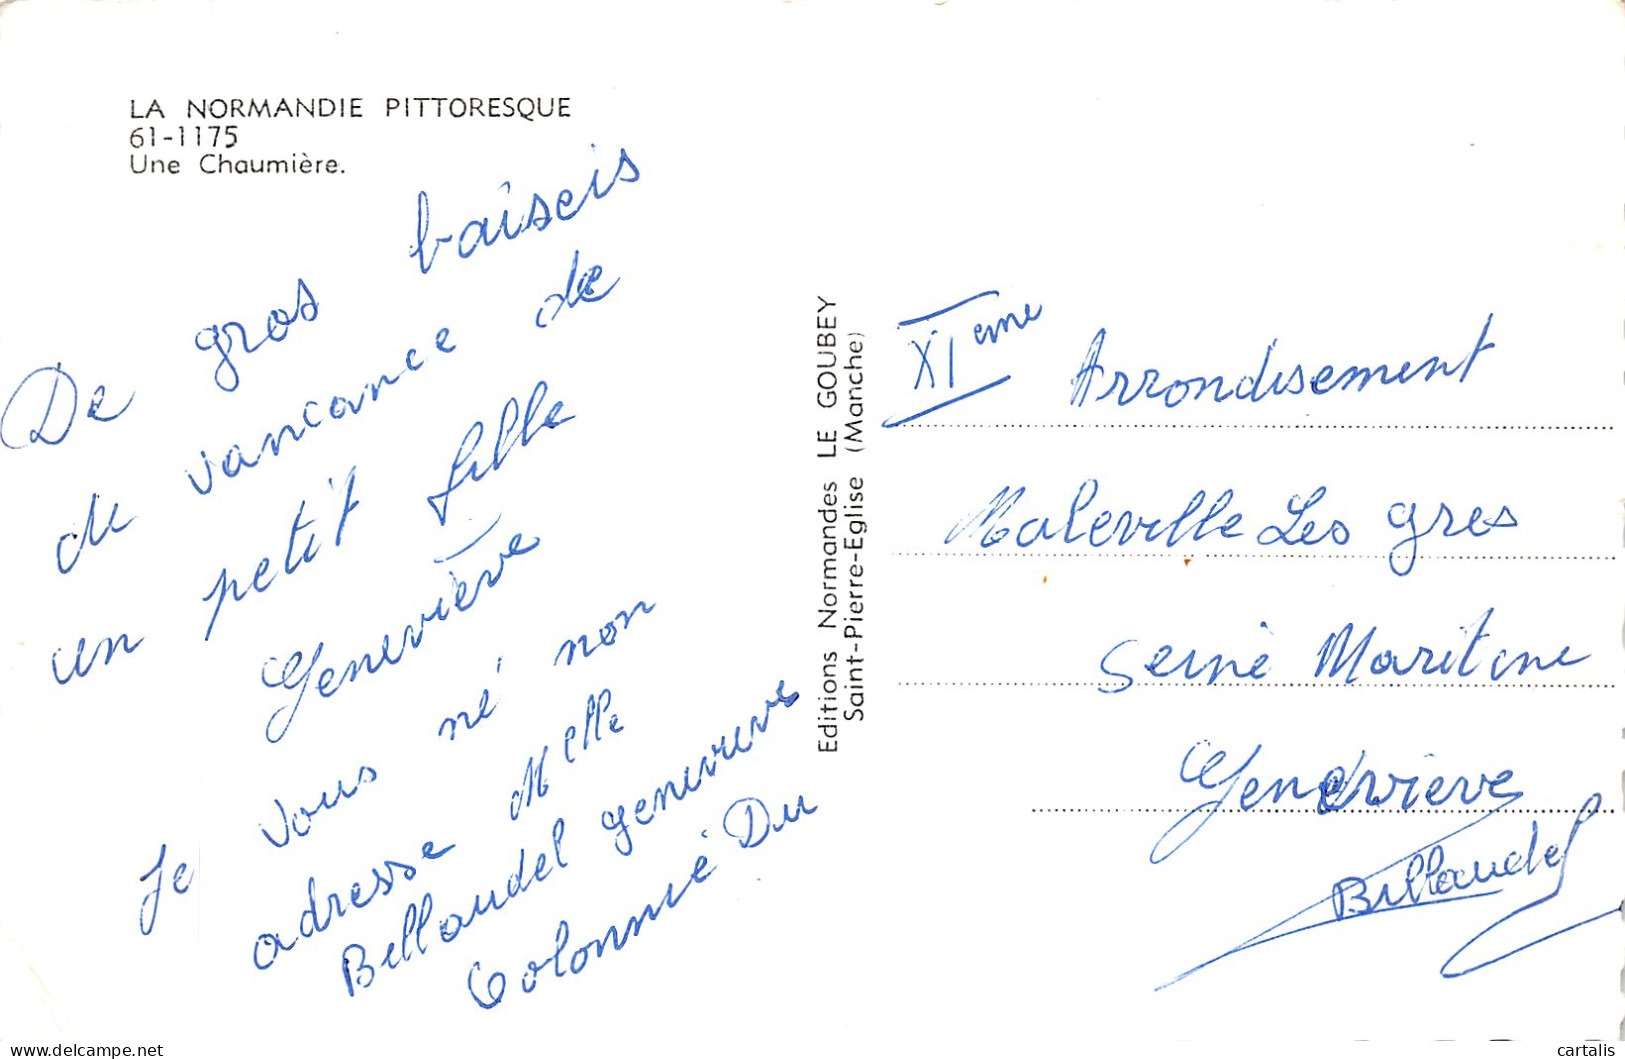 LA NORMANDIE PITTORESQUE
61-1175
Une Chaumière.
De gros baiseis
de vancance de
un petit fille
Geneviève
Je vous né non
adresse Melle
Billaudel genevieve
Colonnié Du
Editions Normandes LE GOUBEY
Saint-Pierre-Eglise (Manche)
XIeme Arrondisement
Maleville Les gres
Seine Maritine
Genevieve
Billaudel
delcampe.net
cartalis